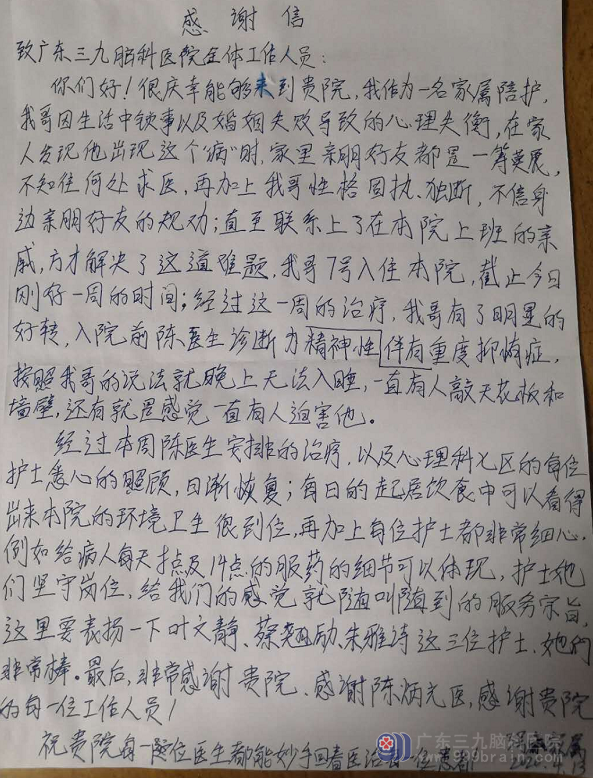 感谢信
致广东三九脑科医院全体工作人员：
你们好！很庆幸能够来到贵院，我作为一名家属陪护，
我哥因生活中锁事以及婚姻失败导致的心理失衡，在家
人发现他出现这个“病”时，家里亲朋好友都是一筹莫展，
不知任何处求医，再加上我哥性格固执、独断，不信身
边亲朋好友的规劝；直至联系上了在本院上班的亲
戚，方才解决了这道难题，我哥7号入住本院，截止今日
刚好一周的时间；经过这一周的治疗，我哥有了明显的
好转，入院前陈医生诊断为精神性伴有重度抑郁症，
按照我哥的说法就晚上无法入睡，一直有人敲天花板和
墙壁，还有就是感觉一直有人迫害他。
经过本周陈医生安排的治疗，以及心理科七区的每位
护士悉心的照顾，日渐恢复；每日的起居饮食中可以看得
出来本院的环境卫生很到位，再加上每位护士都非常细心，
例如给病人每天 点及14点的服药的细节可以体现，护士她
们坚守岗位，给我们的感觉就随叫随到的服务宗旨，
这里要表扬一下叶文静、蔡 励、朱雅诗这三位护士，她们
非常棒。最后，非常感谢贵院、感谢陈炳 医，感谢贵院
的每一位工作人员！
祝贵院每一 位医生都能妙手回春医治 每一位患者
广东三九脑科医院
www.999brain.com